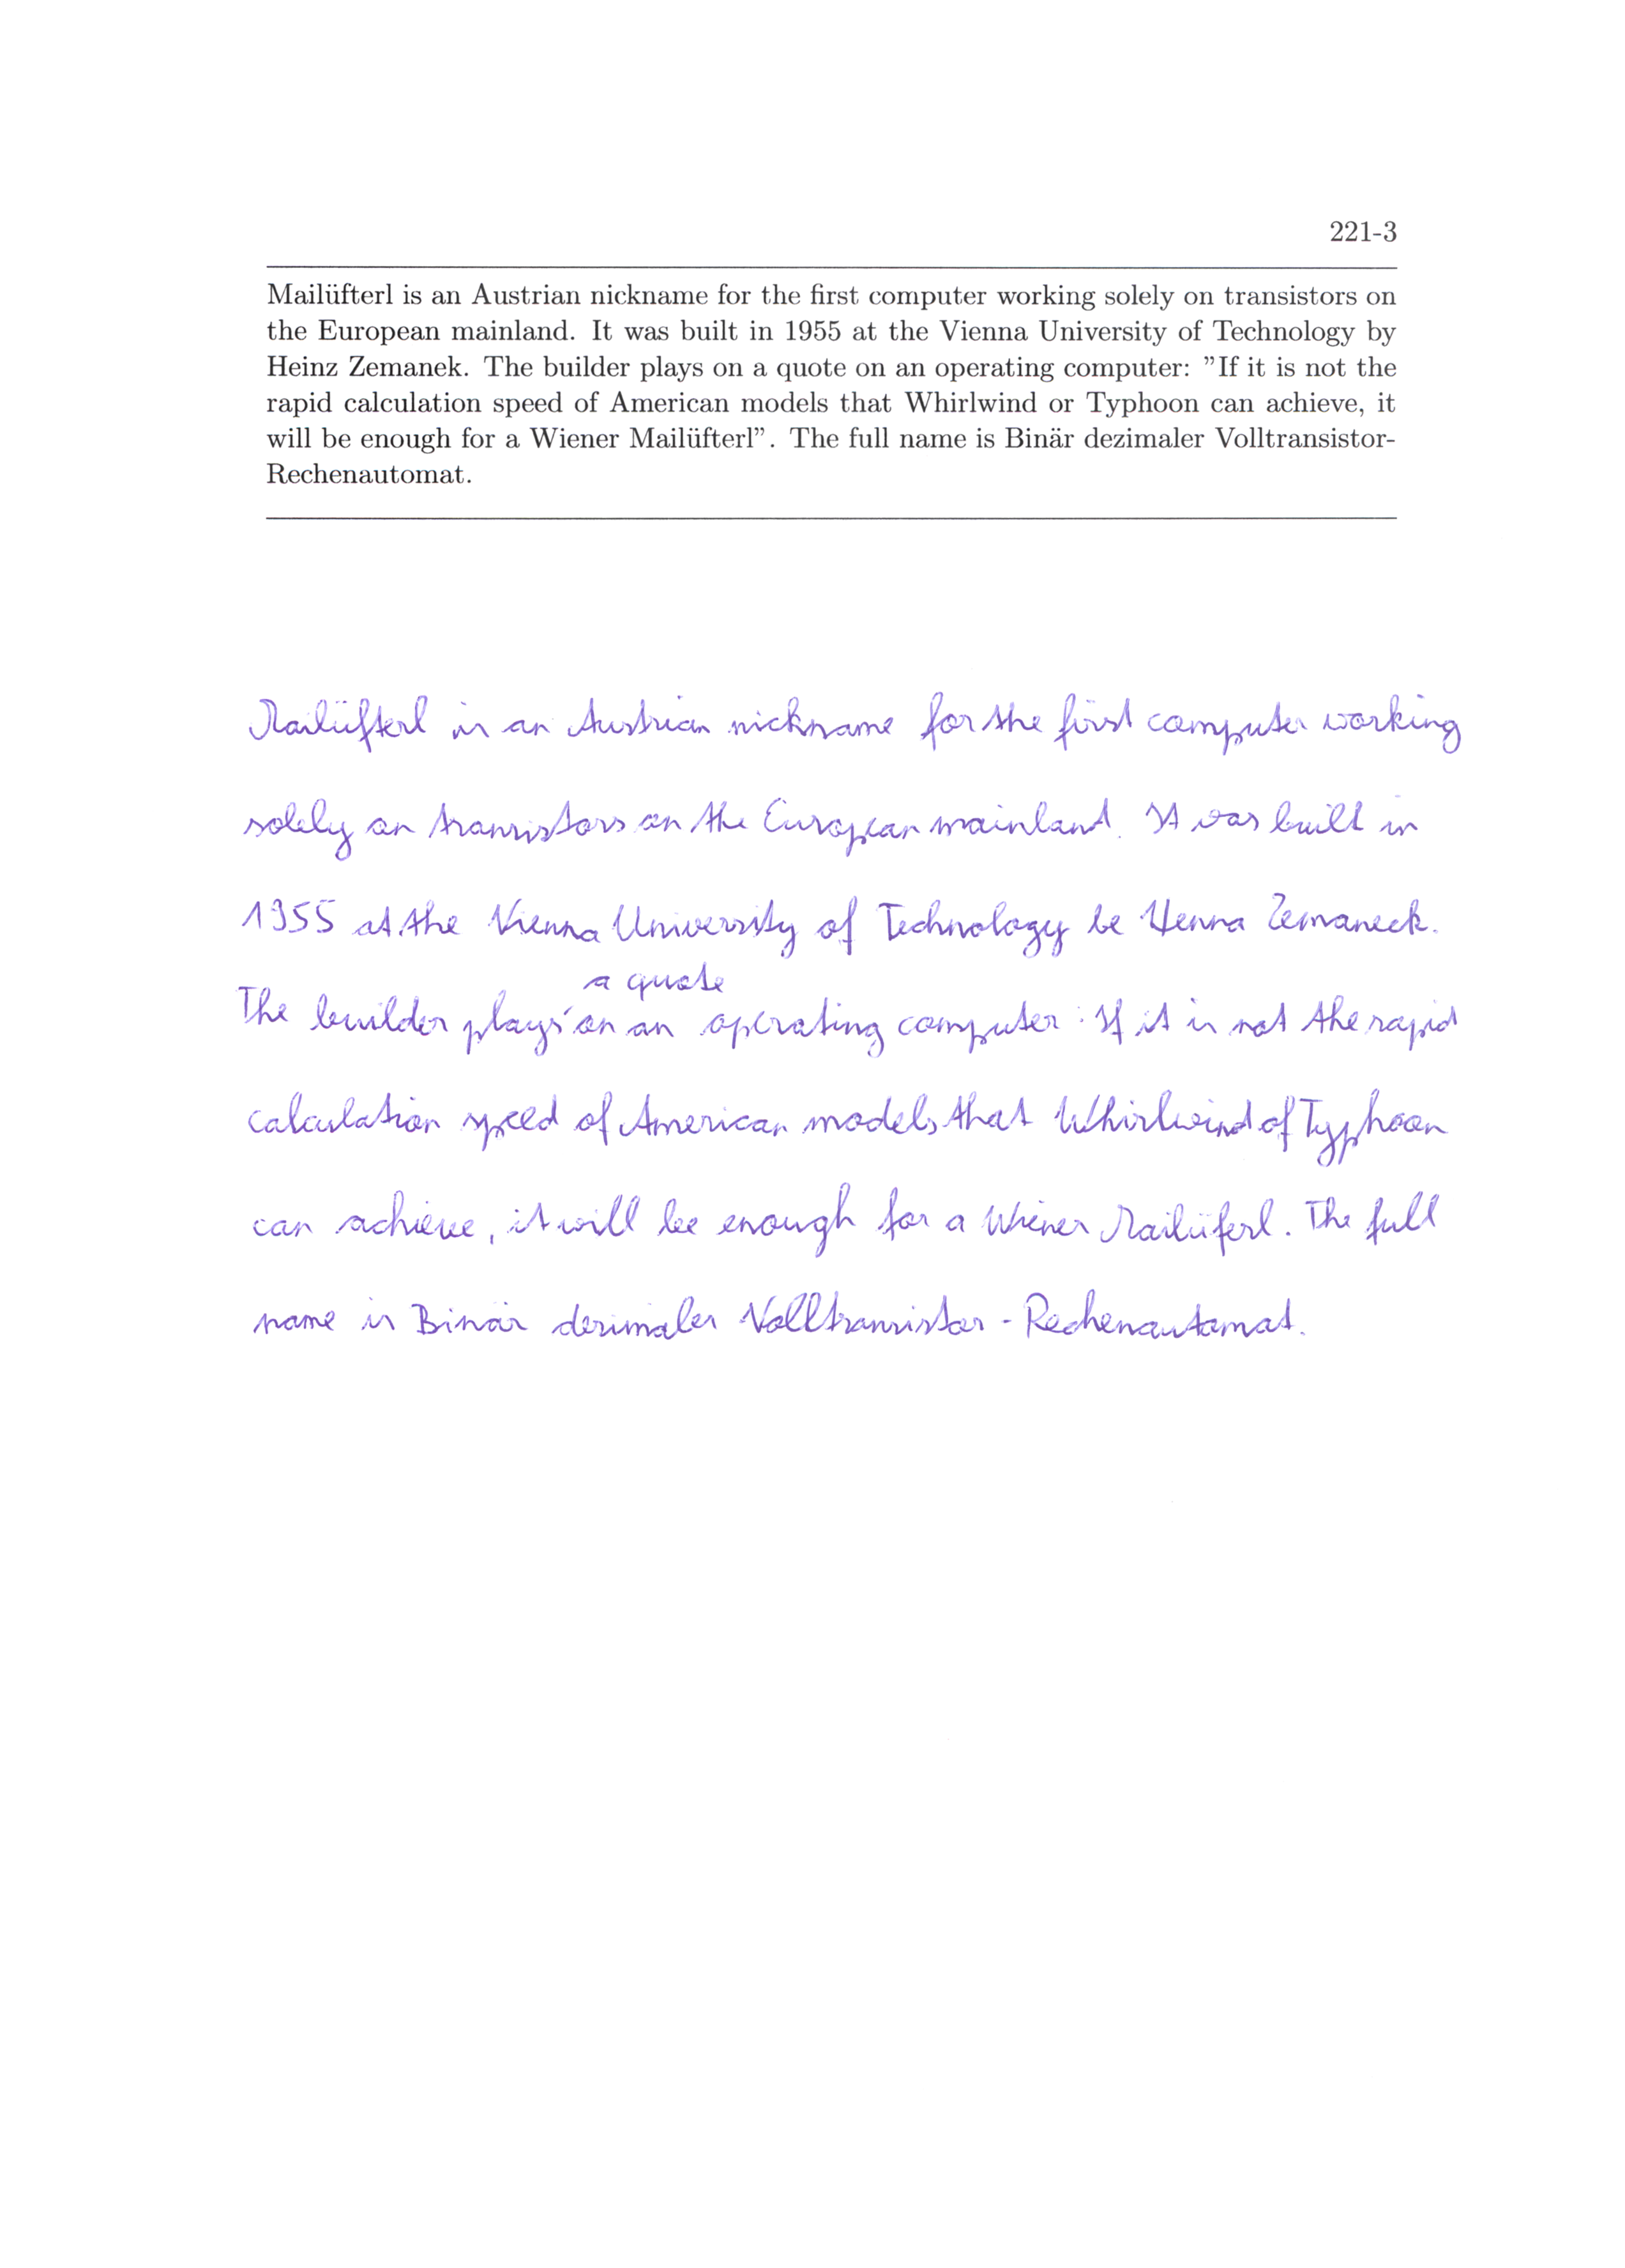 221-3
Mailüfterl is an Austrian nickname for the first computer working solely on transistors on
the European mainland. It was built in 1955 at the Vienna University of Technology by
Heinz Zemanek. The builder plays on a quote on an operating computer: ”If it is not the
rapid calculation speed of American models that Whirlwind or Typhoon can achieve, it
will be enough for a Wiener Mailüfterl”. The full name is Binär dezimaler Volltransistor-
Rechenautomat.
Mailüfterl is an Austrian nickname for the first computer working
solely on transistors on the European mainland. It was built in
1955 at the Vienna University of Technology be Henna Zemaneck.
a quote
The builder plays on an operating computer: If it is not the rapid
calculation speed of American models that Whirlwind of Typhoon
can achieve, it will be enough for a Wiener Mailüferl. The full
name is Binär dezimaler Volltransistor - Rechenautomat.